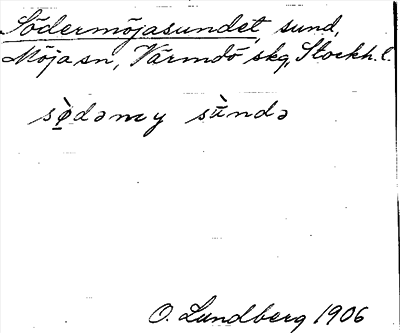 Södermöjasundet, sund,
Möja sn, Värmdö skg, Stockh. l.
sø̀dəmɞy sùndə
O. Lundberg 1906